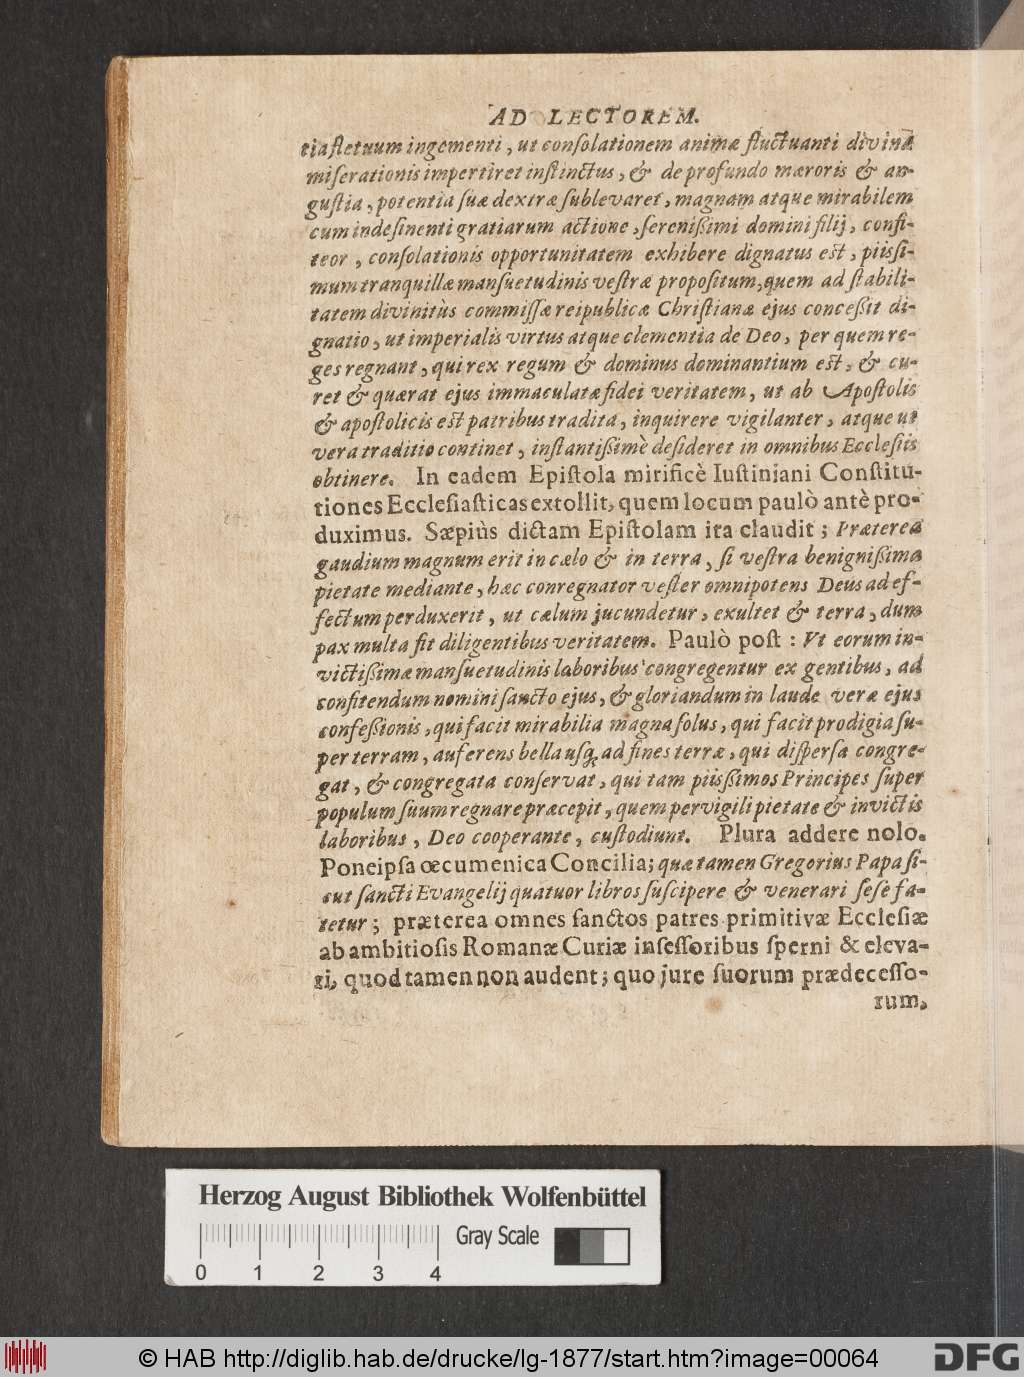 AD LECTOREM.
tia fletuum ingementi, ut conſolationem animæ fluctuanti divinâ
miſerationis impertiret inſtinctus, & de profundo mæroris & an-
guſtia, potentia ſuæ dextræ ſublevaret, magnam atque mirabilem
cum indeſinenti gratiarum actione, ſereniſſimi domini filij, confi-
teor, conſolationis opportunitatem exhibere dignatus eſt, piisſi-
mum tranquillæ manſuetudinis veſtræ propoſitum, quem ad ſtabili-
tatem divinitùs commiſſæ reipublicæ Chriſtianæ ejus conceßit di-
gnatio, ut imperialis virtus atque clementia de Deo, per quem re-
ges regnant, qui rex regum & dominus dominantium eſt, & cu-
ret & quærat ejus immaculatæ fidei veritatem, ut ab Apoſtolis
& apoſtolicis eſt patribus tradita, inquirere vigilanter, atque ut
vera traditio continet, inſtantiſſimè deſideret in omnibus Eccleſiis
obtinere. In eadem Epiſtola mirificè Iuſtiniani Conſtitu-
tiones Eccleſiaſticas extollit, quem locum paulò antè pro-
duximus. Sæpiùs dictam Epiſtolam ita claudit; Præterea
gaudium magnum erit in cælo & in terra, ſi veſtra benignißima
pietate mediante, hæc conregnator veſter omnipotens Deus ad ef-
fectum perduxerit, ut cælum jucundetur, exultet & terra, dum
pax multa fit diligentibus veritatem. Paulò poſt : Vt eorum in-
victißimæ manſuetudinis laboribus congregentur ex gentibus, ad
confitendum nomini ſancto ejus, & gloriandum in laude veræ ejus
confeßionis, qui facit mirabilia magna ſolus, qui facit prodigia ſu-
per terram, auferens bella uſq; ad fines terræ, qui diſperſa congre-
gat, & congregata conſervat, qui tam piisſimos Principes ſuper
populum ſuum regnare præcepit, quem pervigili pietate & invictis
laboribus, Deo cooperante, cuſtodiunt. Plura addere nolo.
Pone ipſa œcumenica Concilia; quæ tamen Gregorius Papa ſi-
cut ſancti Evangelij quatuor libros ſuſcipere & venerari ſeſe fa-
tetur; præterea omnes ſanctos patres primitivæ Eccleſiæ
ab ambitioſis Romanæ Curiæ inſeſſoribus ſperni & eleva-
ri, quod tamen non audent; quo jure ſuorum prædeceſſo-
rum,
Herzog August Bibliothek Wolfenbüttel
Gray Scale
0 1 2 3 4
© HAB http://diglib.hab.de/drucke/lg-1877/start.htm?image=00064
DFG